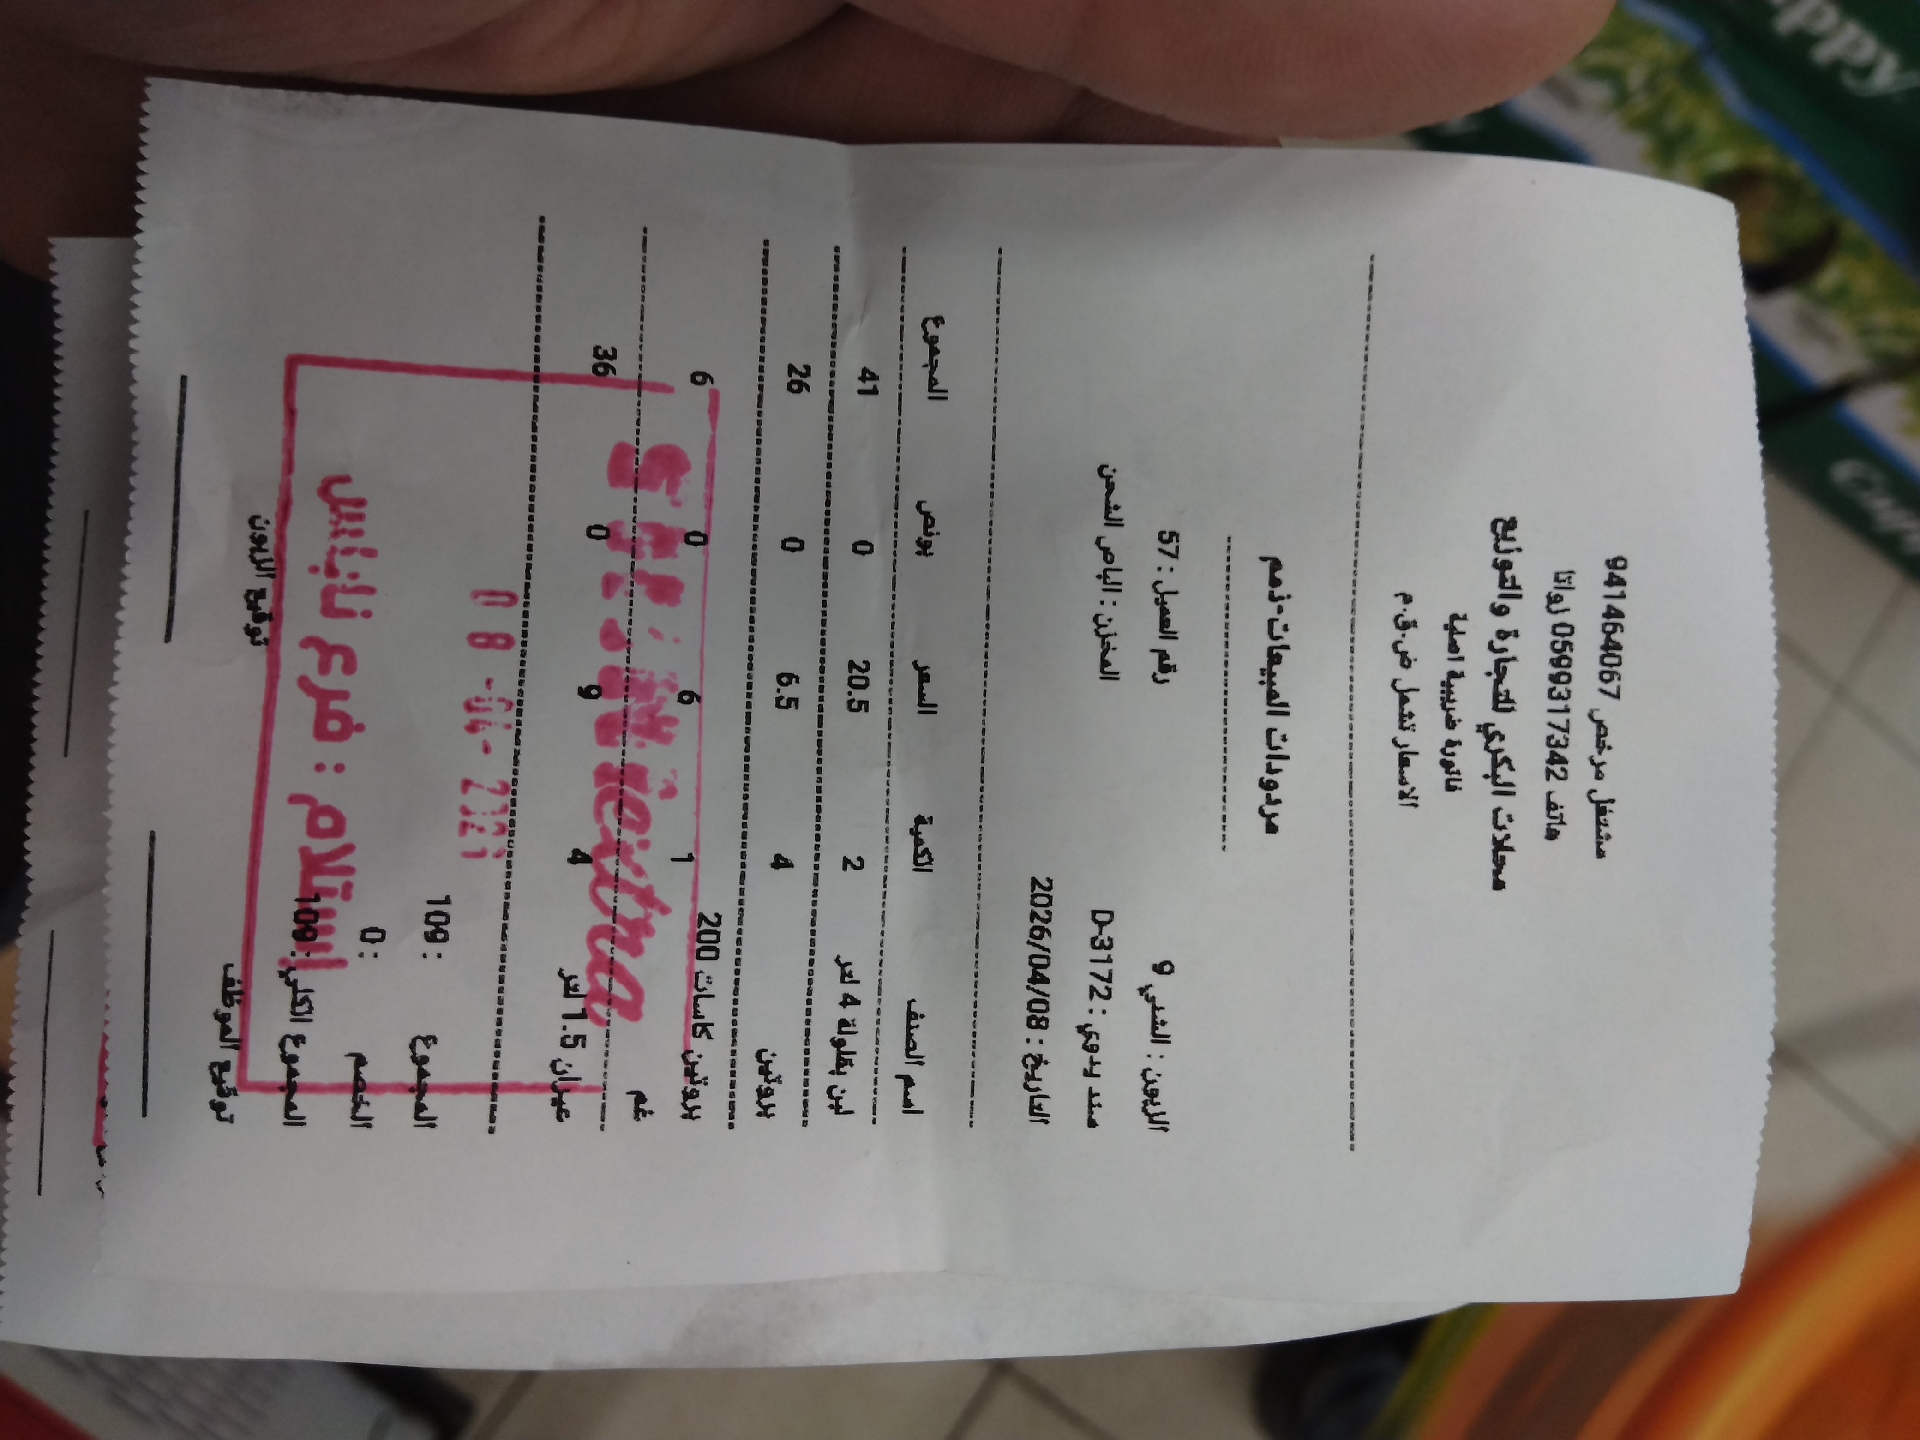 مشتغل مرخص 941464067
هاتف 0599317342 زواتا
محلات البكري للتجارة والتوزيع
فاتورة ضريبية اصلية
الاسعار تشمل ض.ق.م
مردودات المبيعات-ذمم
رقم العميل : 57
الزبون : الشني 9
المخزن : الباص الشحن
سند يدوي : D-3172
التاريخ : 2026/04/08
اسم الصنف الكمية السعر بونص المجموع
لبن بقلولة 4 لتر 2 20.5 0 41
بروتين 4 6.5 0 26
بروتين كاسات 200 1 6 0 6
غم
عيران 1.5 لتر 4 9 0 36
extra
08-04-2026
المجموع : 109
الخصم : 0
المجموع الكلي : 109
استلام : فرع نابلس
توقيع الموظف توقيع الزبون